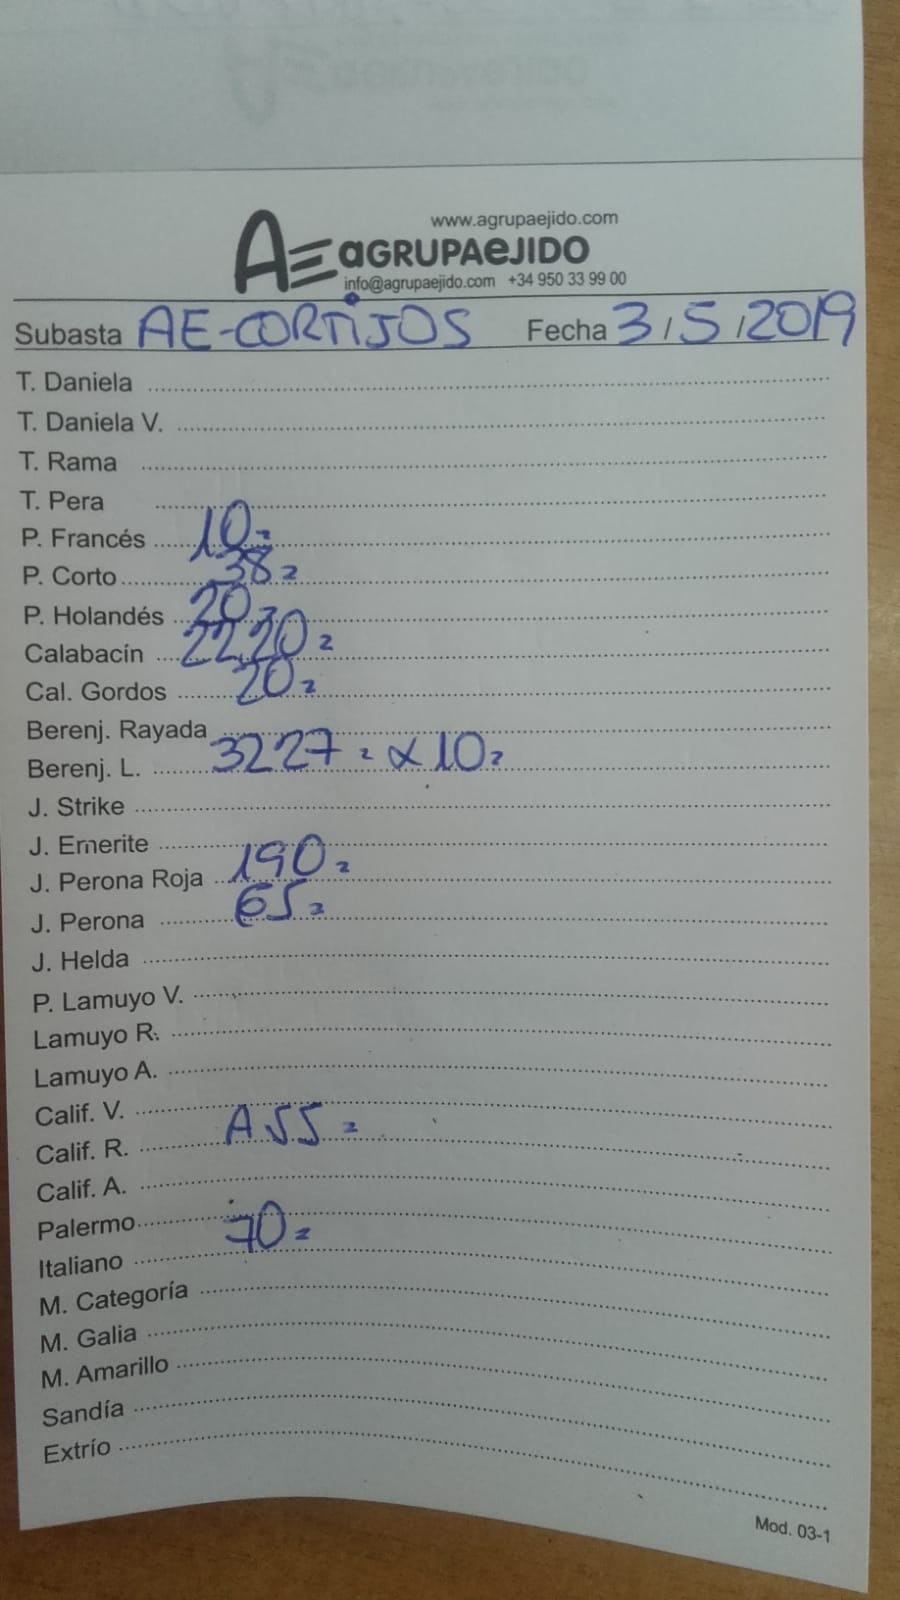 www.agrupaejido.com
AE aGRUPAeJIDO
info@agrupaejido.com +34 950 33 99 00
Subasta AE-CORTIJOS Fecha 3/5/2019
T. Daniela
T. Daniela V.
T. Rama
T. Pera
P. Francés 10
P. Corto 38
P. Holandés 20
Calabacín 22 20
Cal. Gordos 20
Berenj. Rayada
Berenj. L. 32 27 x 10
J. Strike
J. Emerite
J. Perona Roja 190
J. Perona 65
J. Helda
P. Lamuyo V.
Lamuyo R.
Lamuyo A.
Calif. V.
Calif. R. A55
Calif. A.
Palermo
Italiano 70
M. Categoría
M. Galia
M. Amarillo
Sandía
Extrío
Mod. 03-1